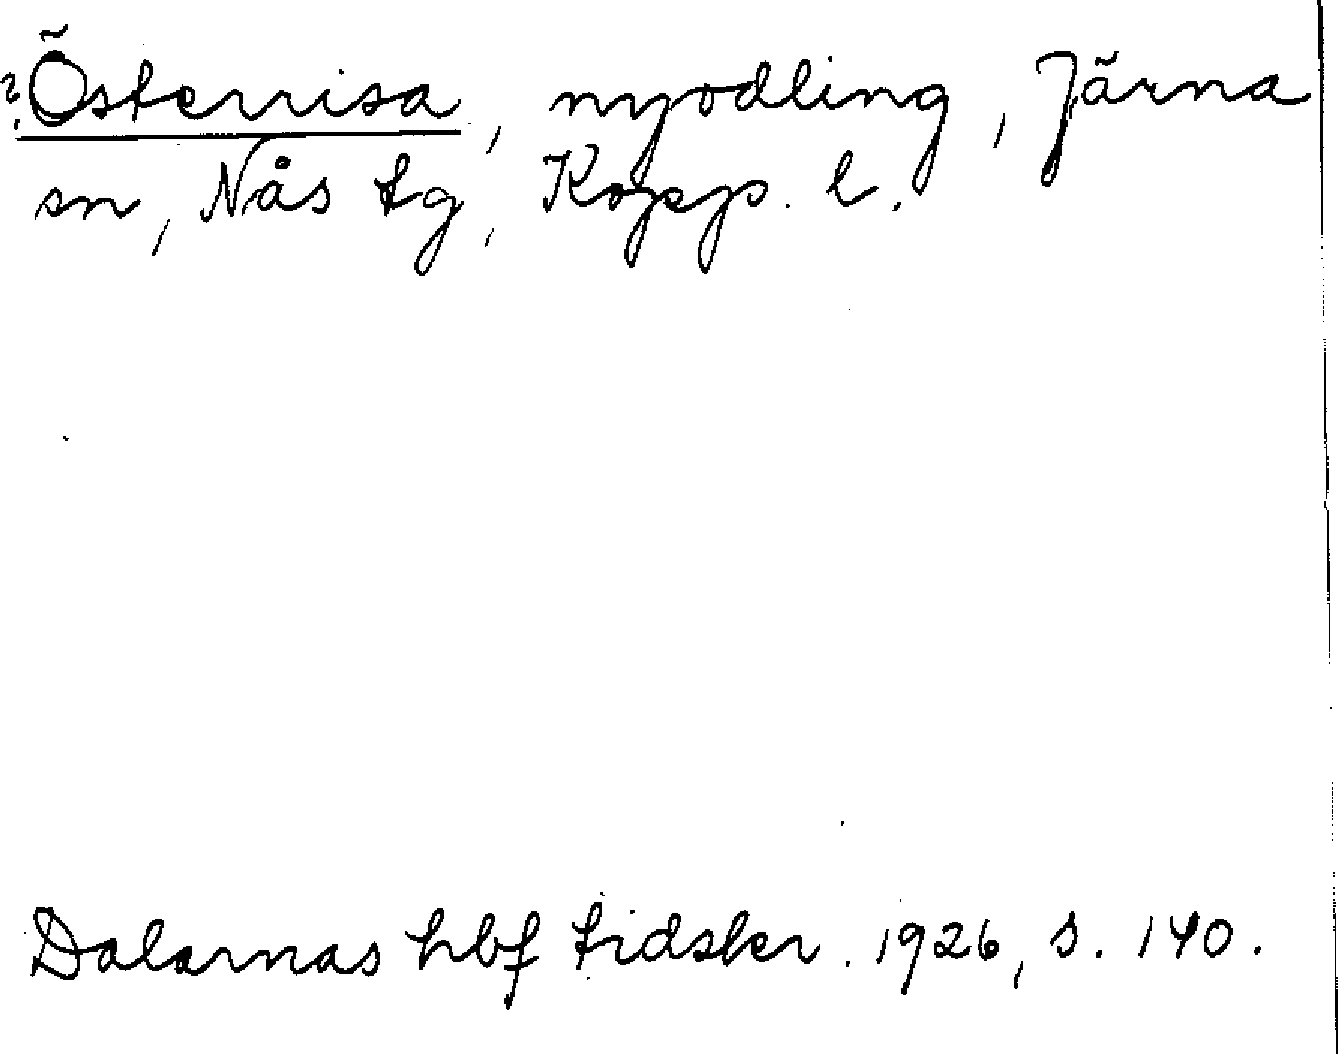 ?Österrisa, nyodling, Järna
sn, Nås tg, Kopp. l.
Dalarnas hbf tidskr. 1926, s. 140.